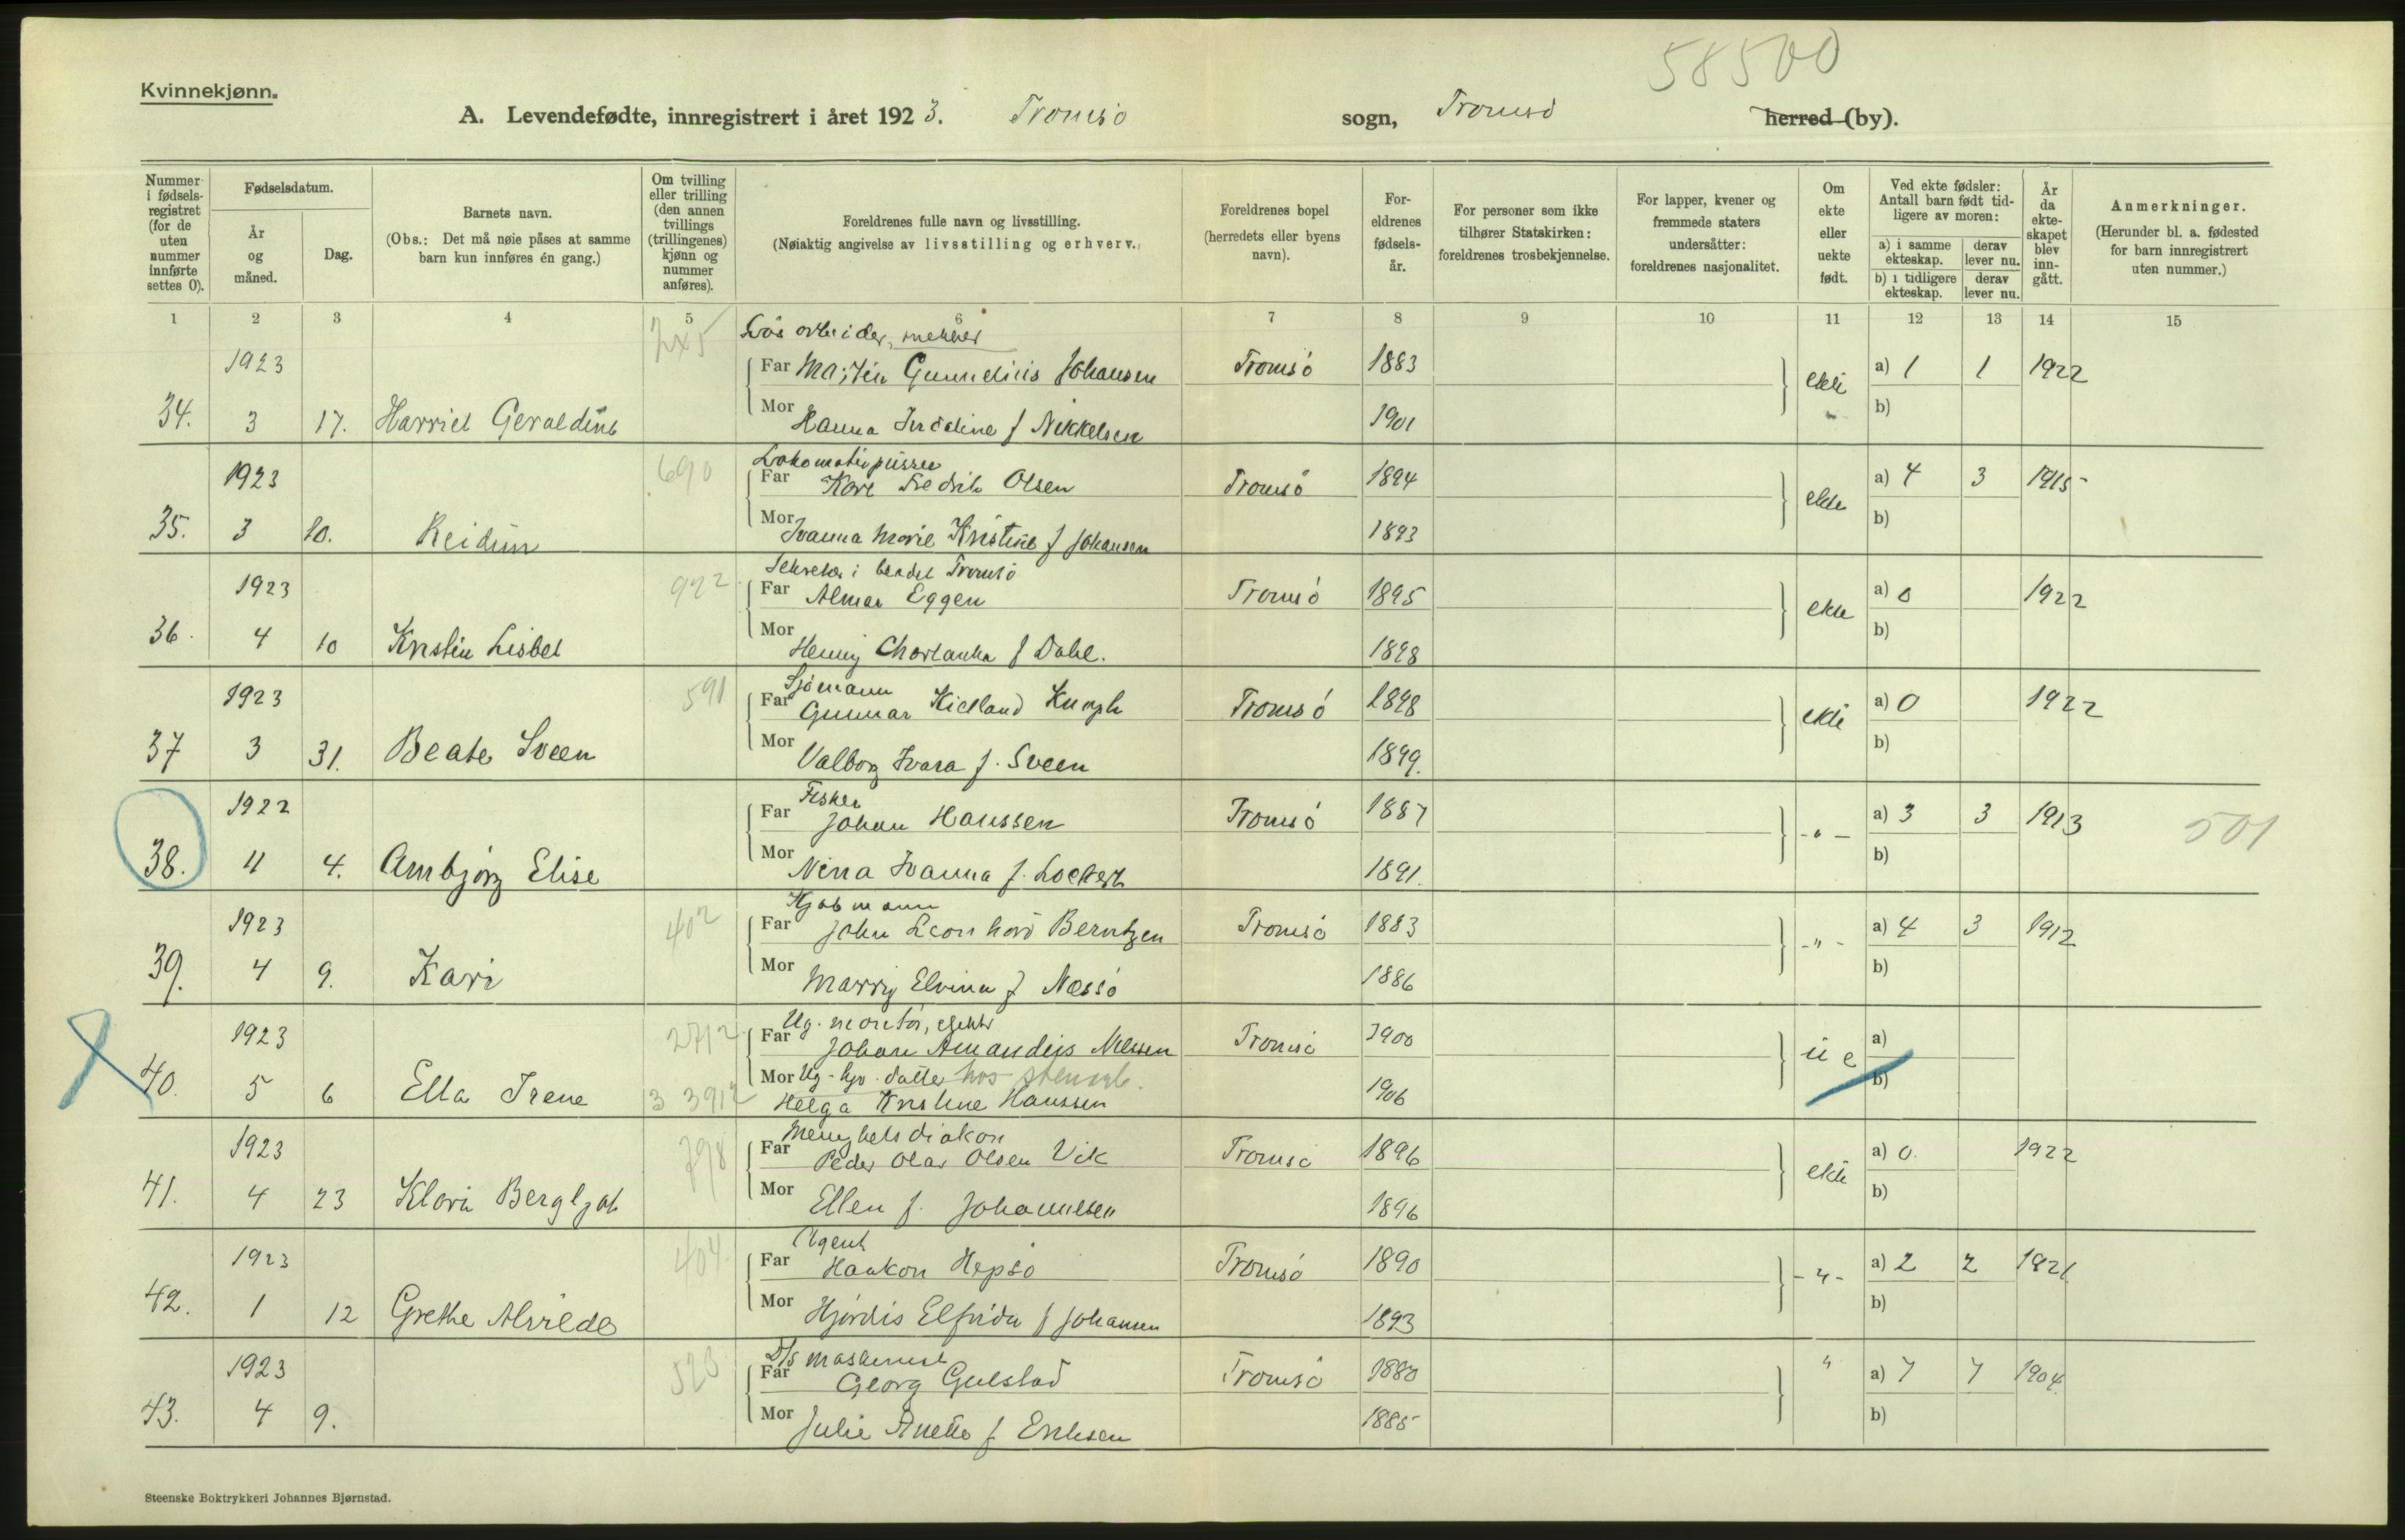 58500
Kvinnekjønn.
A. Levendefødte, innregistrert i året 1923. Tromsö sogn, Tromsö herred (by).
Nummer i fødselsregistret (for de uten nummer innførte settes 0).
Fødselsdatum.
År og måned.
Dag.
Barnets navn.
(Obs.: Det må nøie påses at samme barn kun innføres én gang.)
Om tvilling eller trilling (den annen tvillings (trillingenes) kjønn og nummer anføres).
Foreldrenes fulle navn og livsstilling.
(Nøiaktig angivelse av livsstilling og erhverv.)
Foreldrenes bopel (herredets eller byens navn).
Foreldrenes fødselsår.
For personer som ikke tilhører Statskirken: foreldrenes trosbekjennelse.
For lapper, kvener og fremmede staters undersåtter: foreldrenes nasjonalitet.
Om ekte eller uekte født.
Ved ekte fødsler: Antall barn født tidligere av moren:
a) i samme ekteskap. derav lever nu.
b) i tidligere ekteskap. derav lever nu.
År da ekteskapet blev inngått.
Anmerkninger.
(Herunder bl. a. fødested for barn innregistrert uten nummer.)
1 2 3 4 5 6 7 8 9 10 11 12 13 14 15
Lös arbeider,
1923 Far Johansen Tromsö 1883 ekte a) 1 1 1922
34. 3 17. Harriet Geraldine Mor Hanna f Nikkelsen 1901 b)
690 Lokomotivpusser
1923 Far Kåre Fredrik Olsen Tromsö 1894 ekte a) 4 3 1915
35. 3 10. Reidun Mor Ivanna Marie Kristine f Johansen 1893 b)
922 Sekretær i bladet Tromsö
1923 Far Almar Eggen Tromsö 1895 ekte a) 0 1922
36. 4 10 Kristin Lisbet Mor Henny f Dahl. 1898 b)
591 Sjömann
1923 Far Gunnar Kielland Tromsö 1898 ekte a) 0 1922
37 3 31. Beate Sveen Mor Valborg Ivara f. Sveen 1899. b)
Fisker
1922 Far Johan Hanssen Tromsö 1887 -"- a) 3 3 1913 501
38. 11 4. Arnbjörg Elise Mor Nina Ivanna f. Lockert 1891. b)
402 Kjöbmann
1923 Far John Leonhard Berntzen Tromsö 1883 -"- a) 4 3 1912
39. 4 9. Kari Mor Marry Elvina f Næssö 1886 b)
2712 Ug. montör,
1923 Far Johan Amandus Nilssen Tromsö 1900 u e a)
40. 5 6 Ella Irene Mor Ug. datter hos
Helga Kristine Hanssen 1906 b)
798 Menighetsdiakon
1923 Far Peder Olav Olsen Vik Tromsö 1896 ekte a) 0. 1922
41. 4 23 Klara Bergljot Mor Ellen f. Johannesen 1896 b)
404 Agent
1923 Far Haakon Hepsö Tromsö 1890 -"- a) 2 2 1921
42. 1 12 Grethe Alvilde Mor Hjördis Elfrida f Johansen 1893 b)
523 D/S maskinist
1923 Far Georg Gulstad Tromsö 1880 " a) 7 7 1904
43. 4 9. Mor Julie Anette f Eriksen 1885 b)
Steenske Boktrykkeri Johannes Bjørnstad.